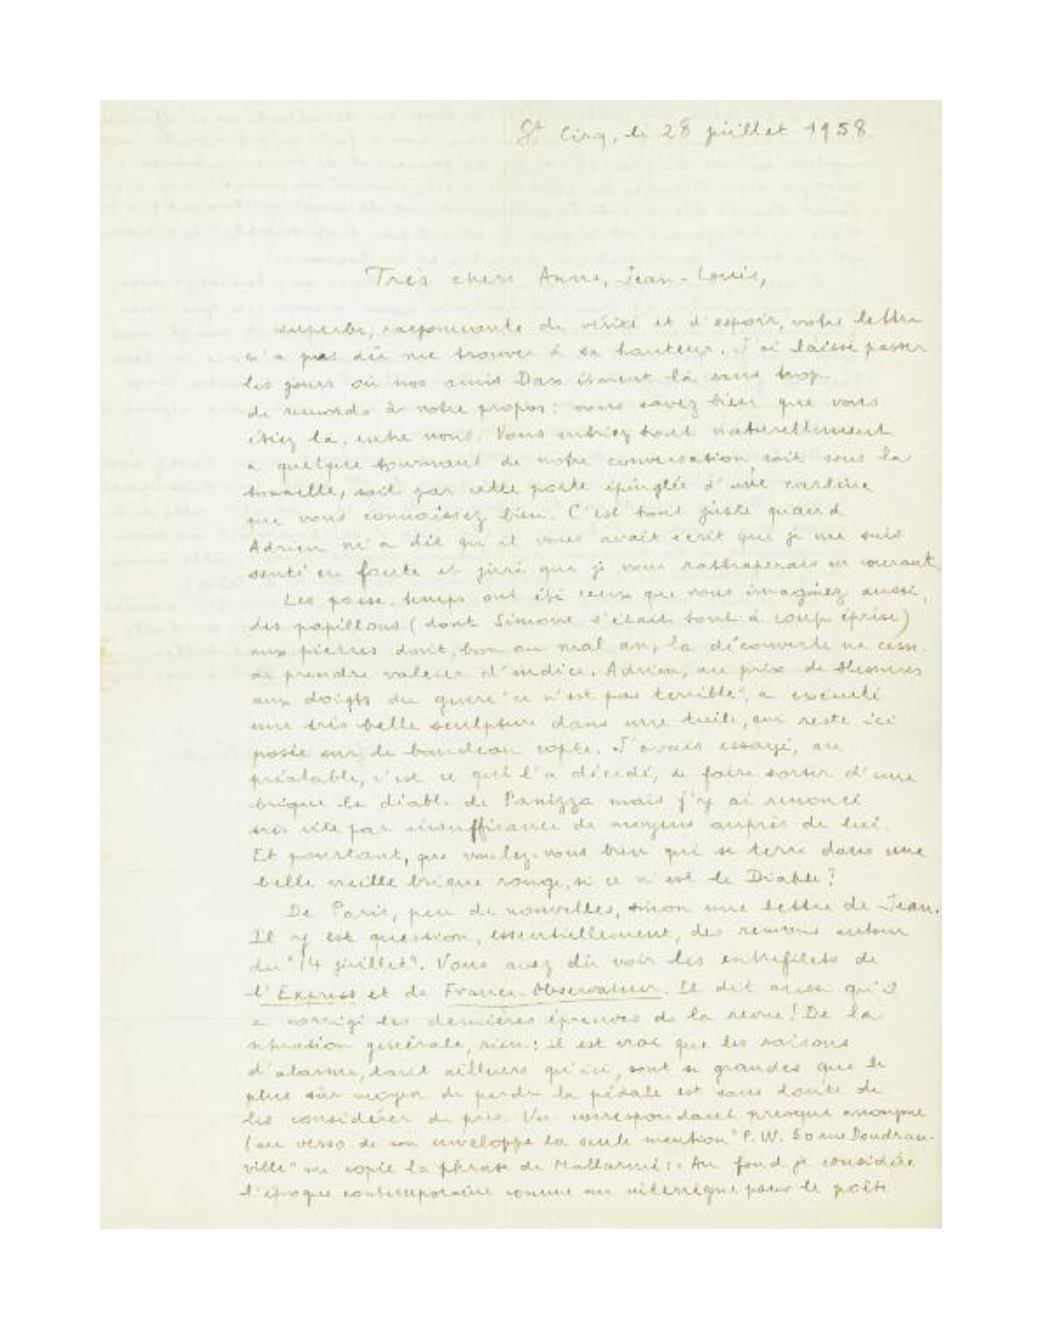 St Cirq, le 28 juillet 1958.
Très chers Anne, Jean-Louis,
superbe, rayonnante de vérité et d'espoir, votre lettre
n'a pas dû me trouver à sa hauteur. J'ai laissé passer
les jours où nos amis Dax étaient là sans trop
de remords à votre propos : vous savez bien que vous
étiez là, entre nous. Vous entriez tout naturellement
à quelque tournant de notre conversation, soit sous la
tonnelle, soit par cette porte épinglée d'une carline
que vous connaissez bien. C'est tout juste quand
Adrien m'a dit qu'il vous avait écrit que je me suis
senti en faute et juré que je vous rattraperais en courant.
Les passe-temps ont été ceux que vous imaginez aussi,
des papillons (dont Simone s'était tout à coup éprise)
aux pierres dont, bon an mal an, la découverte ne cesse
de prendre valeur d'indice. Adrien, au prix de blessures
aux doigts du genre "ce n'est pas terrible", a exécuté
une très belle sculpture dans une tuile, qui reste ici
posée sur le bandeau copte. J'avais essayé, au
préalable, c'est ce qui l'a décidé, de faire sortir d'une
brique le diable de Panizza mais j'y ai renoncé
très vite par insuffisance de moyens auprès de lui.
Et pourtant, que voulez-vous bien qui se terre dans une
belle vieille brique rouge, si ce n'est le Diable ?
De Paris, peu de nouvelles, sinon une lettre de Jean.
Il y est question, essentiellement, des remous autour
du "14 juillet". Vous avez dû voir les entrefilets de
l'Express et de France-Observateur. Il dit aussi qu'il
a corrigé les dernières épreuves de la revue ! De la
situation générale, rien : il est vrai que les raisons
d'alarme, tant ailleurs qu'ici, sont si grandes que le
plus sûr moyen de perdre la pédale est sans doute de
les considérer de près. Un correspondant presque anonyme
(au verso de son enveloppe la seule mention "P.W. 50 rue Doudeau-
ville" me copie la phrase de Mallarmé : Au fond je considère
l'époque contemporaine comme un interrègne pour le poète